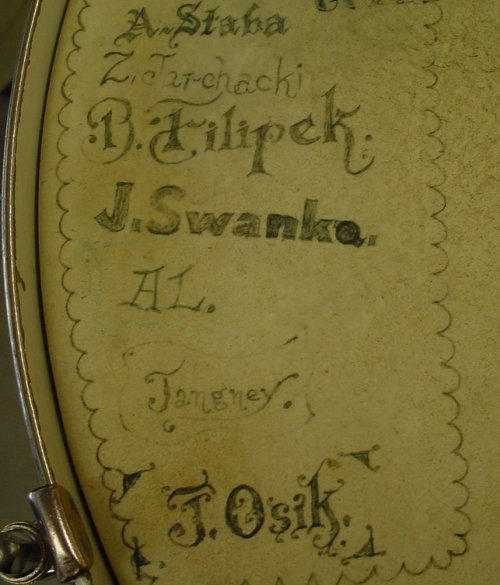 A. Staba
Z. Turchacki
B. Filipek.
J. Swanke.
AL.
Tangney.
J. Osik.